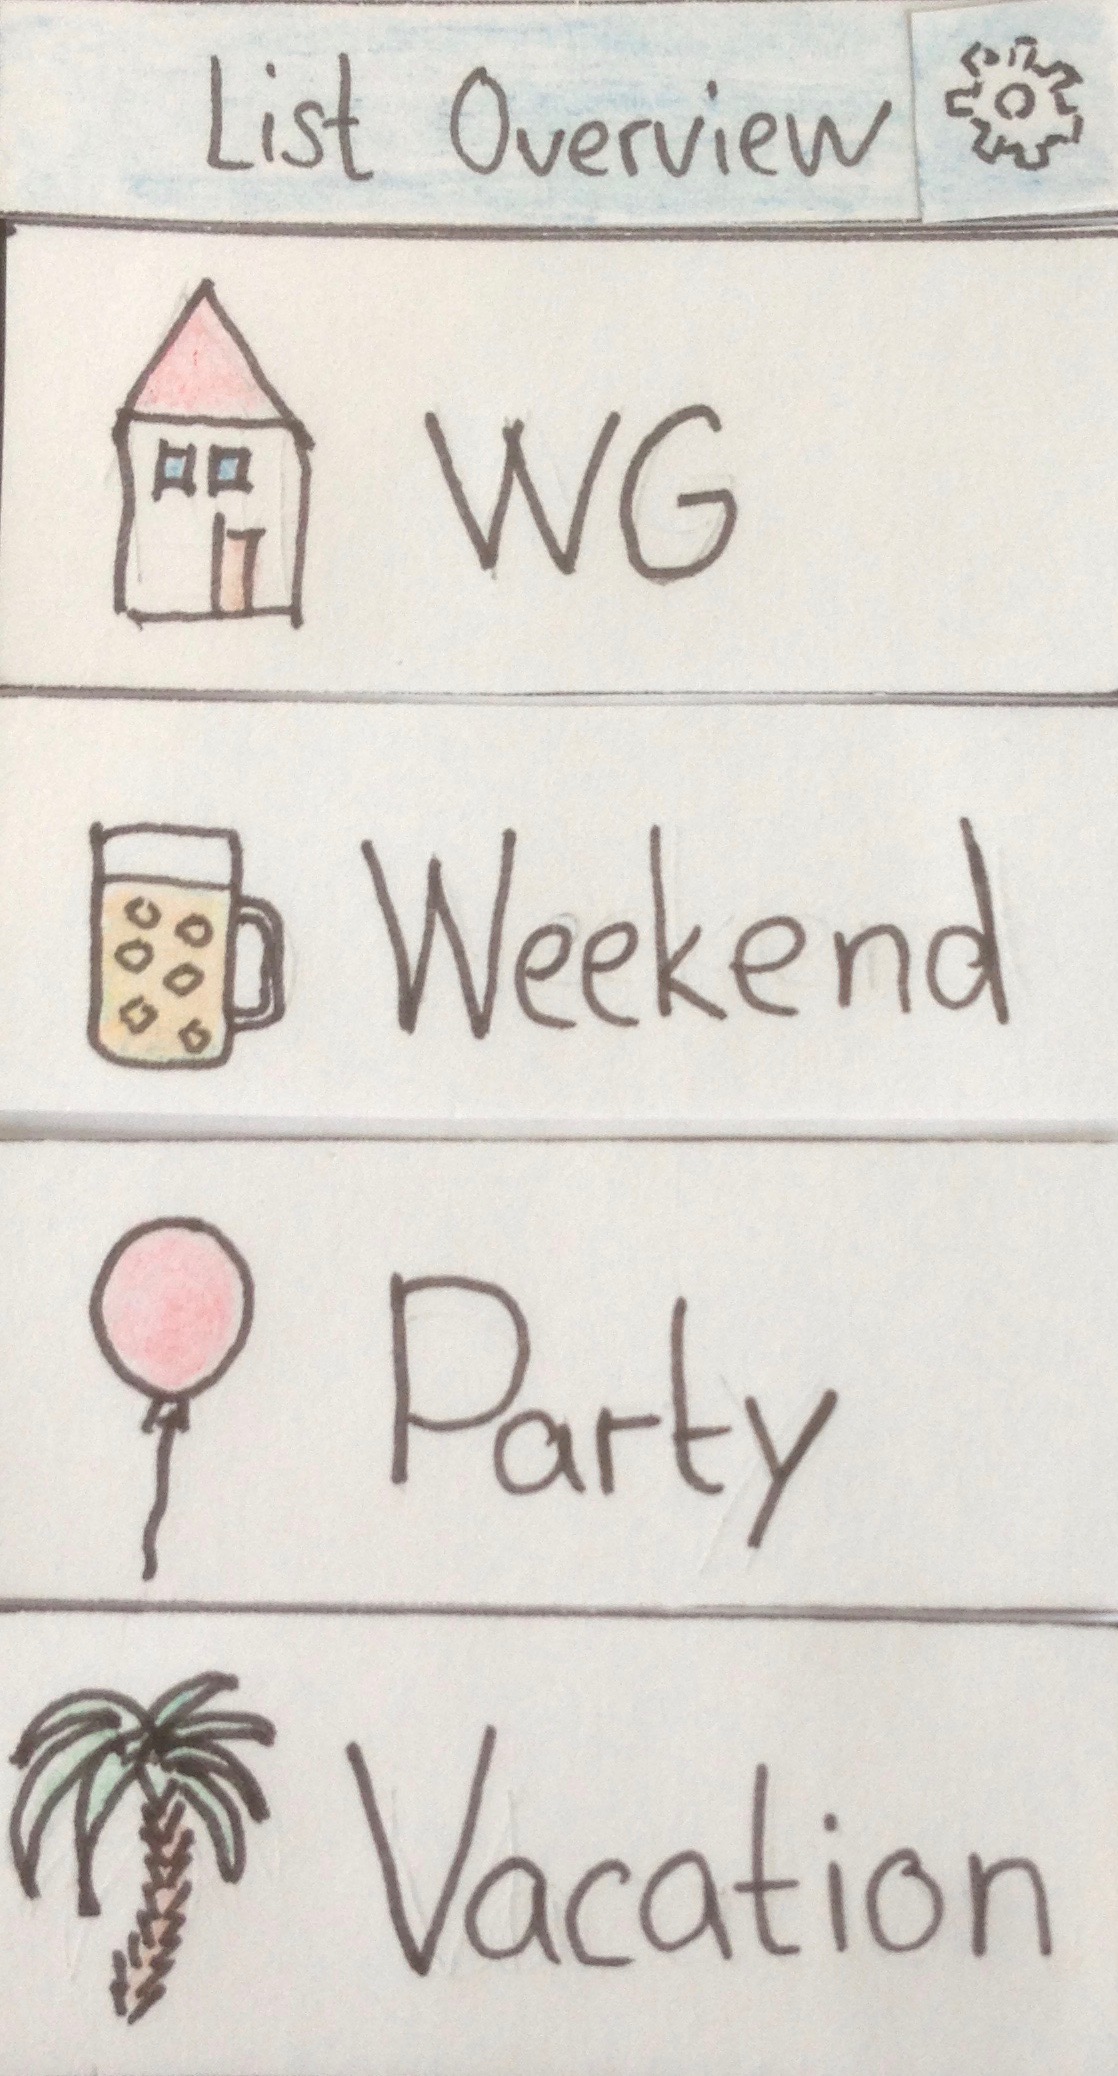 List Overview
WG
Weekend
Party
Vacation